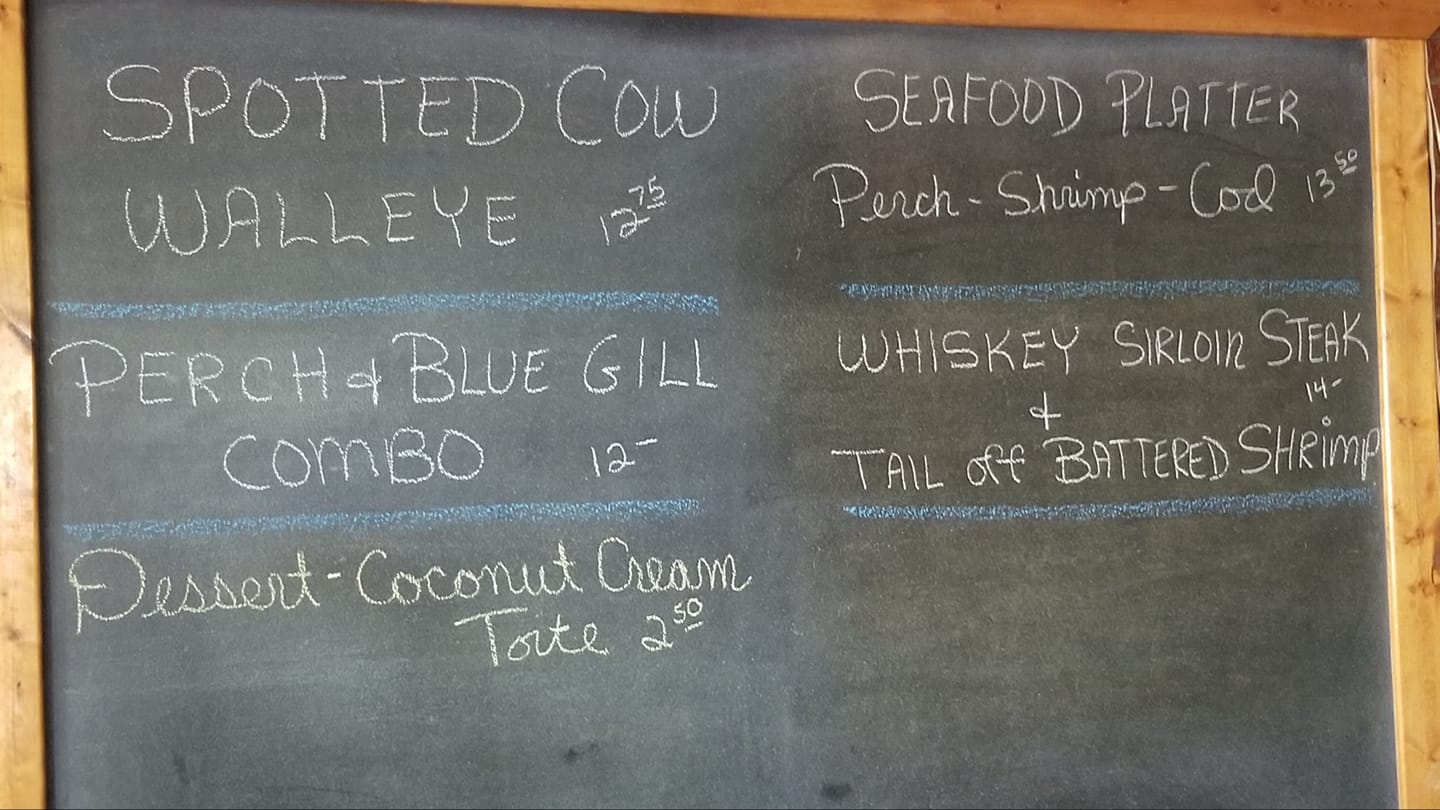 SPOTTED COW
WALLEYE 12 75
PERCH & BLUE GILL
COMBO 12-
Dessert - Coconut Cream
Torte 2 50
SEAFOOD PLATTER
Perch - Shrimp - Cod 13 50
WHISKEY SIRLOIN STEAK
14-
&
TAIL off BATTERED SHRIMP